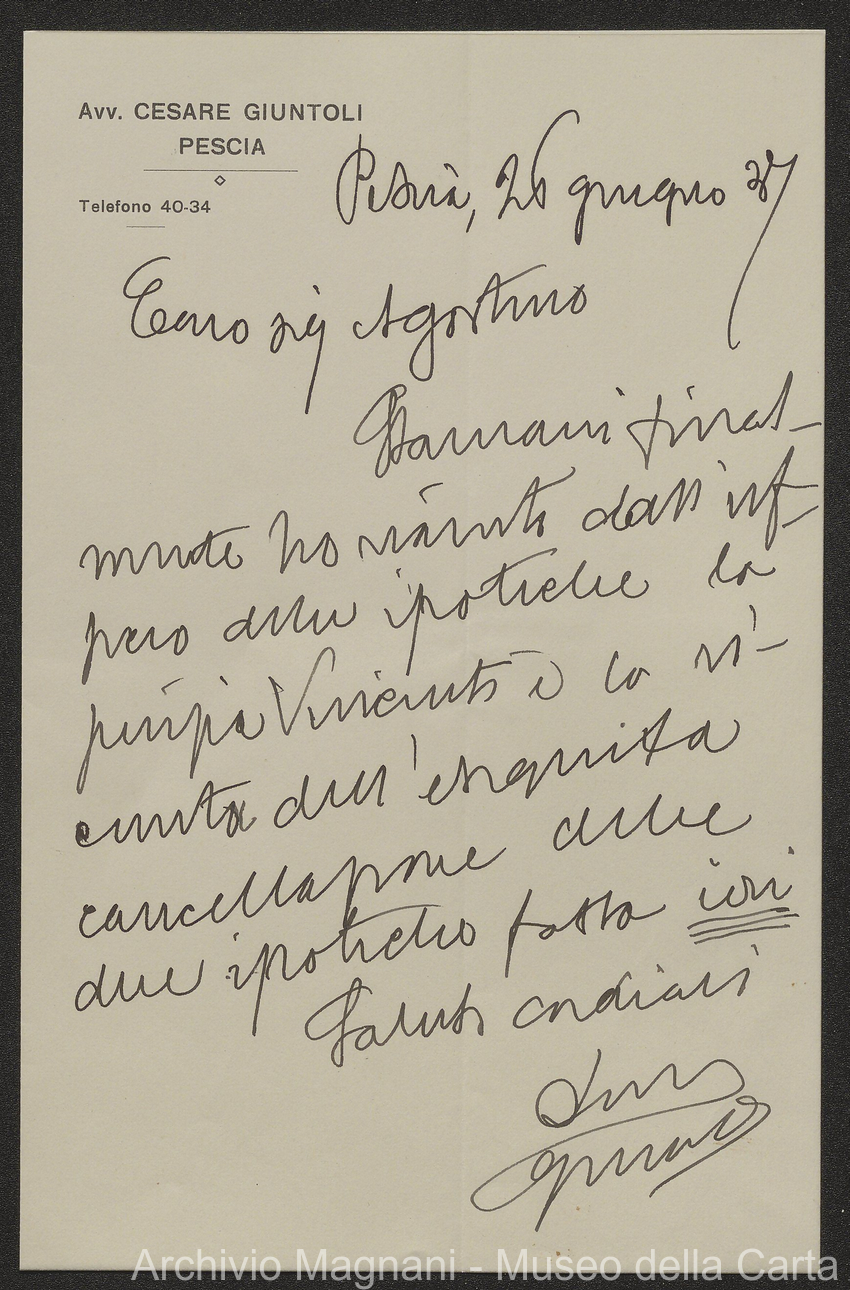 Avv. CESARE GIUNTOLI
PESCIA
Telefono 40-34
Pescia, 26 giugno 37
Caro sig Agostino
Stamani final-
mente ho ricevuto dall'uf-
ficio delle ipoteche la
e la ri-
cevuta dell'eseguita
cancellazione delle
due ipoteche fatta ieri
Saluti cordiali
Archivio Magnani - Museo della Carta